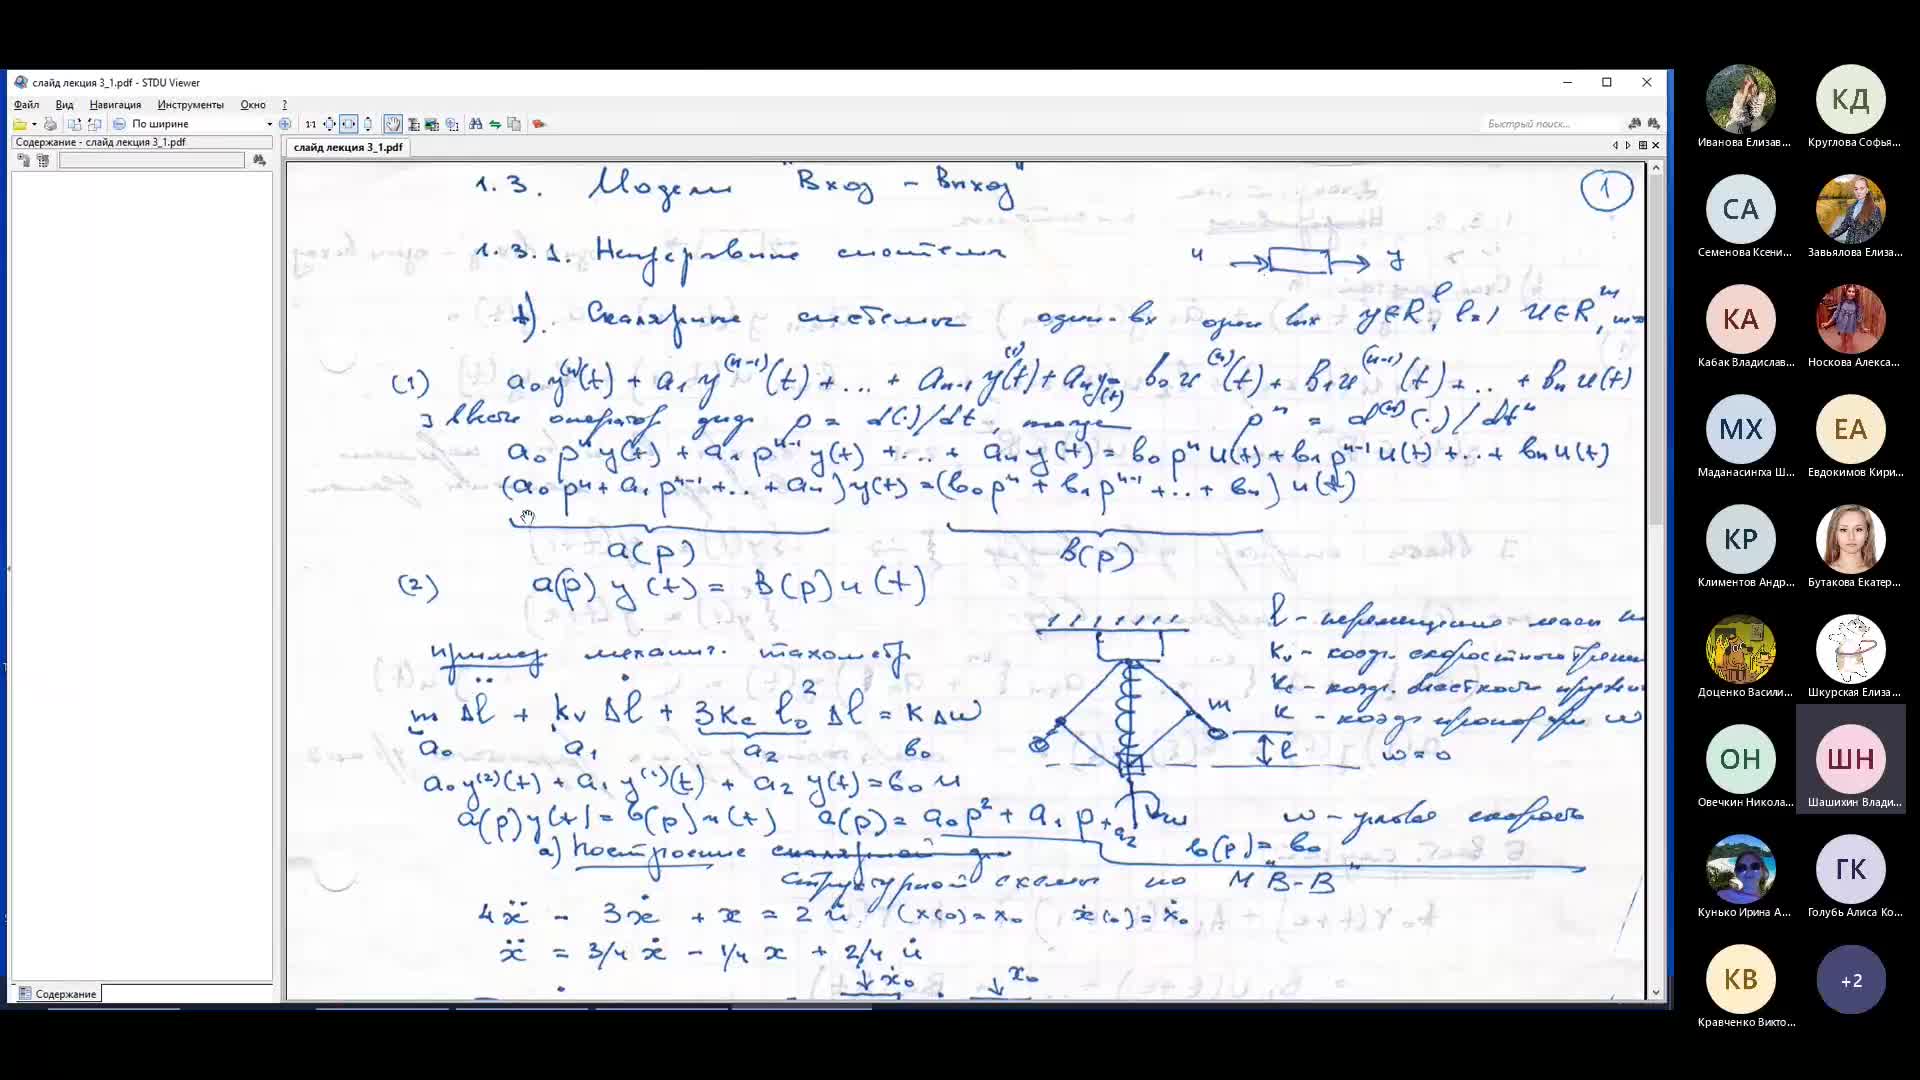 слайд лекция 3_1.pdf - STDU Viewer
Файл Вид Навигация Инструменты Окно ?
1:1 По ширине Быстрый поиск...
Содержание - слайд лекция 3_1.pdf
слайд лекция 3_1.pdf
1.3. Модели "Вход - выход"
1
1.3.1. Непрерывные системы u y
1). Скалярные системы один-вх один вых y∈R^l, l=1 u∈R^m, m=
(1) a₀y^(n)(t) + a₁y^(n-1)(t) + ... + aₙ₋₁y^(1)(t) + aₙy(t) = b₀u^(n)(t) + b₁u^(n-1)(t) + .. + bₙu(t)
оператор p = d(.)/dt, тогда pⁿ = d^(n)(.)/dtⁿ
a₀pⁿy(t) + a₁pⁿ⁻¹y(t) + ... + aₙy(t) = b₀pⁿu(t) + b₁pⁿ⁻¹u(t) + .. + bₙu(t)
(a₀pⁿ + a₁pⁿ⁻¹ + .. + aₙ)y(t) = (b₀pⁿ + b₁pⁿ⁻¹ + .. + bₙ)u(t)
a(p) b(p)
(2) a(p)y(t) = b(p)u(t)
l - перемещение массы m
пример механич. тахометр
kᵥ - коэф. скоростного трения
k_c - коэф. жесткости пружины
mΔl̈ + kᵥΔl̇ + 3k_c l₀²Δl = kΔω
k - коэф. ω
a₀ a₁ a₂ b₀
m l ω=0
a₀y^(2)(t) + a₁y^(1)(t) + a₂y(t) = b₀u
a(p)y(t) = b(p)u(t) a(p) = a₀p² + a₁p + a₂ ω ω - угловая скорость
b(p) = b₀
а) Построение
структурной схемы по М "В-В"
4ẍ - 3ẋ + x = 2u̇ (x(0)=x₀ ẋ(0)=ẋ₀
ẍ = 3/4 ẋ - 1/4 x + 2/4 u̇
ẋ₀ x₀
Содержание
Иванова Елизав...
КД
Круглова Софья...
СА
Семенова Ксени...
Завьялова Елиза...
КА
Кабак Владислав...
Носкова Алекса...
МХ
Маданасингха Ш...
ЕА
Евдокимов Кири...
КР
Климентов Андр...
Бутакова Екатер...
Доценко Васили...
Шкурская Елиза...
ОН
Овечкин Никола...
ШН
Шашихин Влади...
Кунько Ирина А...
ГК
Голубь Алиса Ко...
КВ
Кравченко Викто...
+2